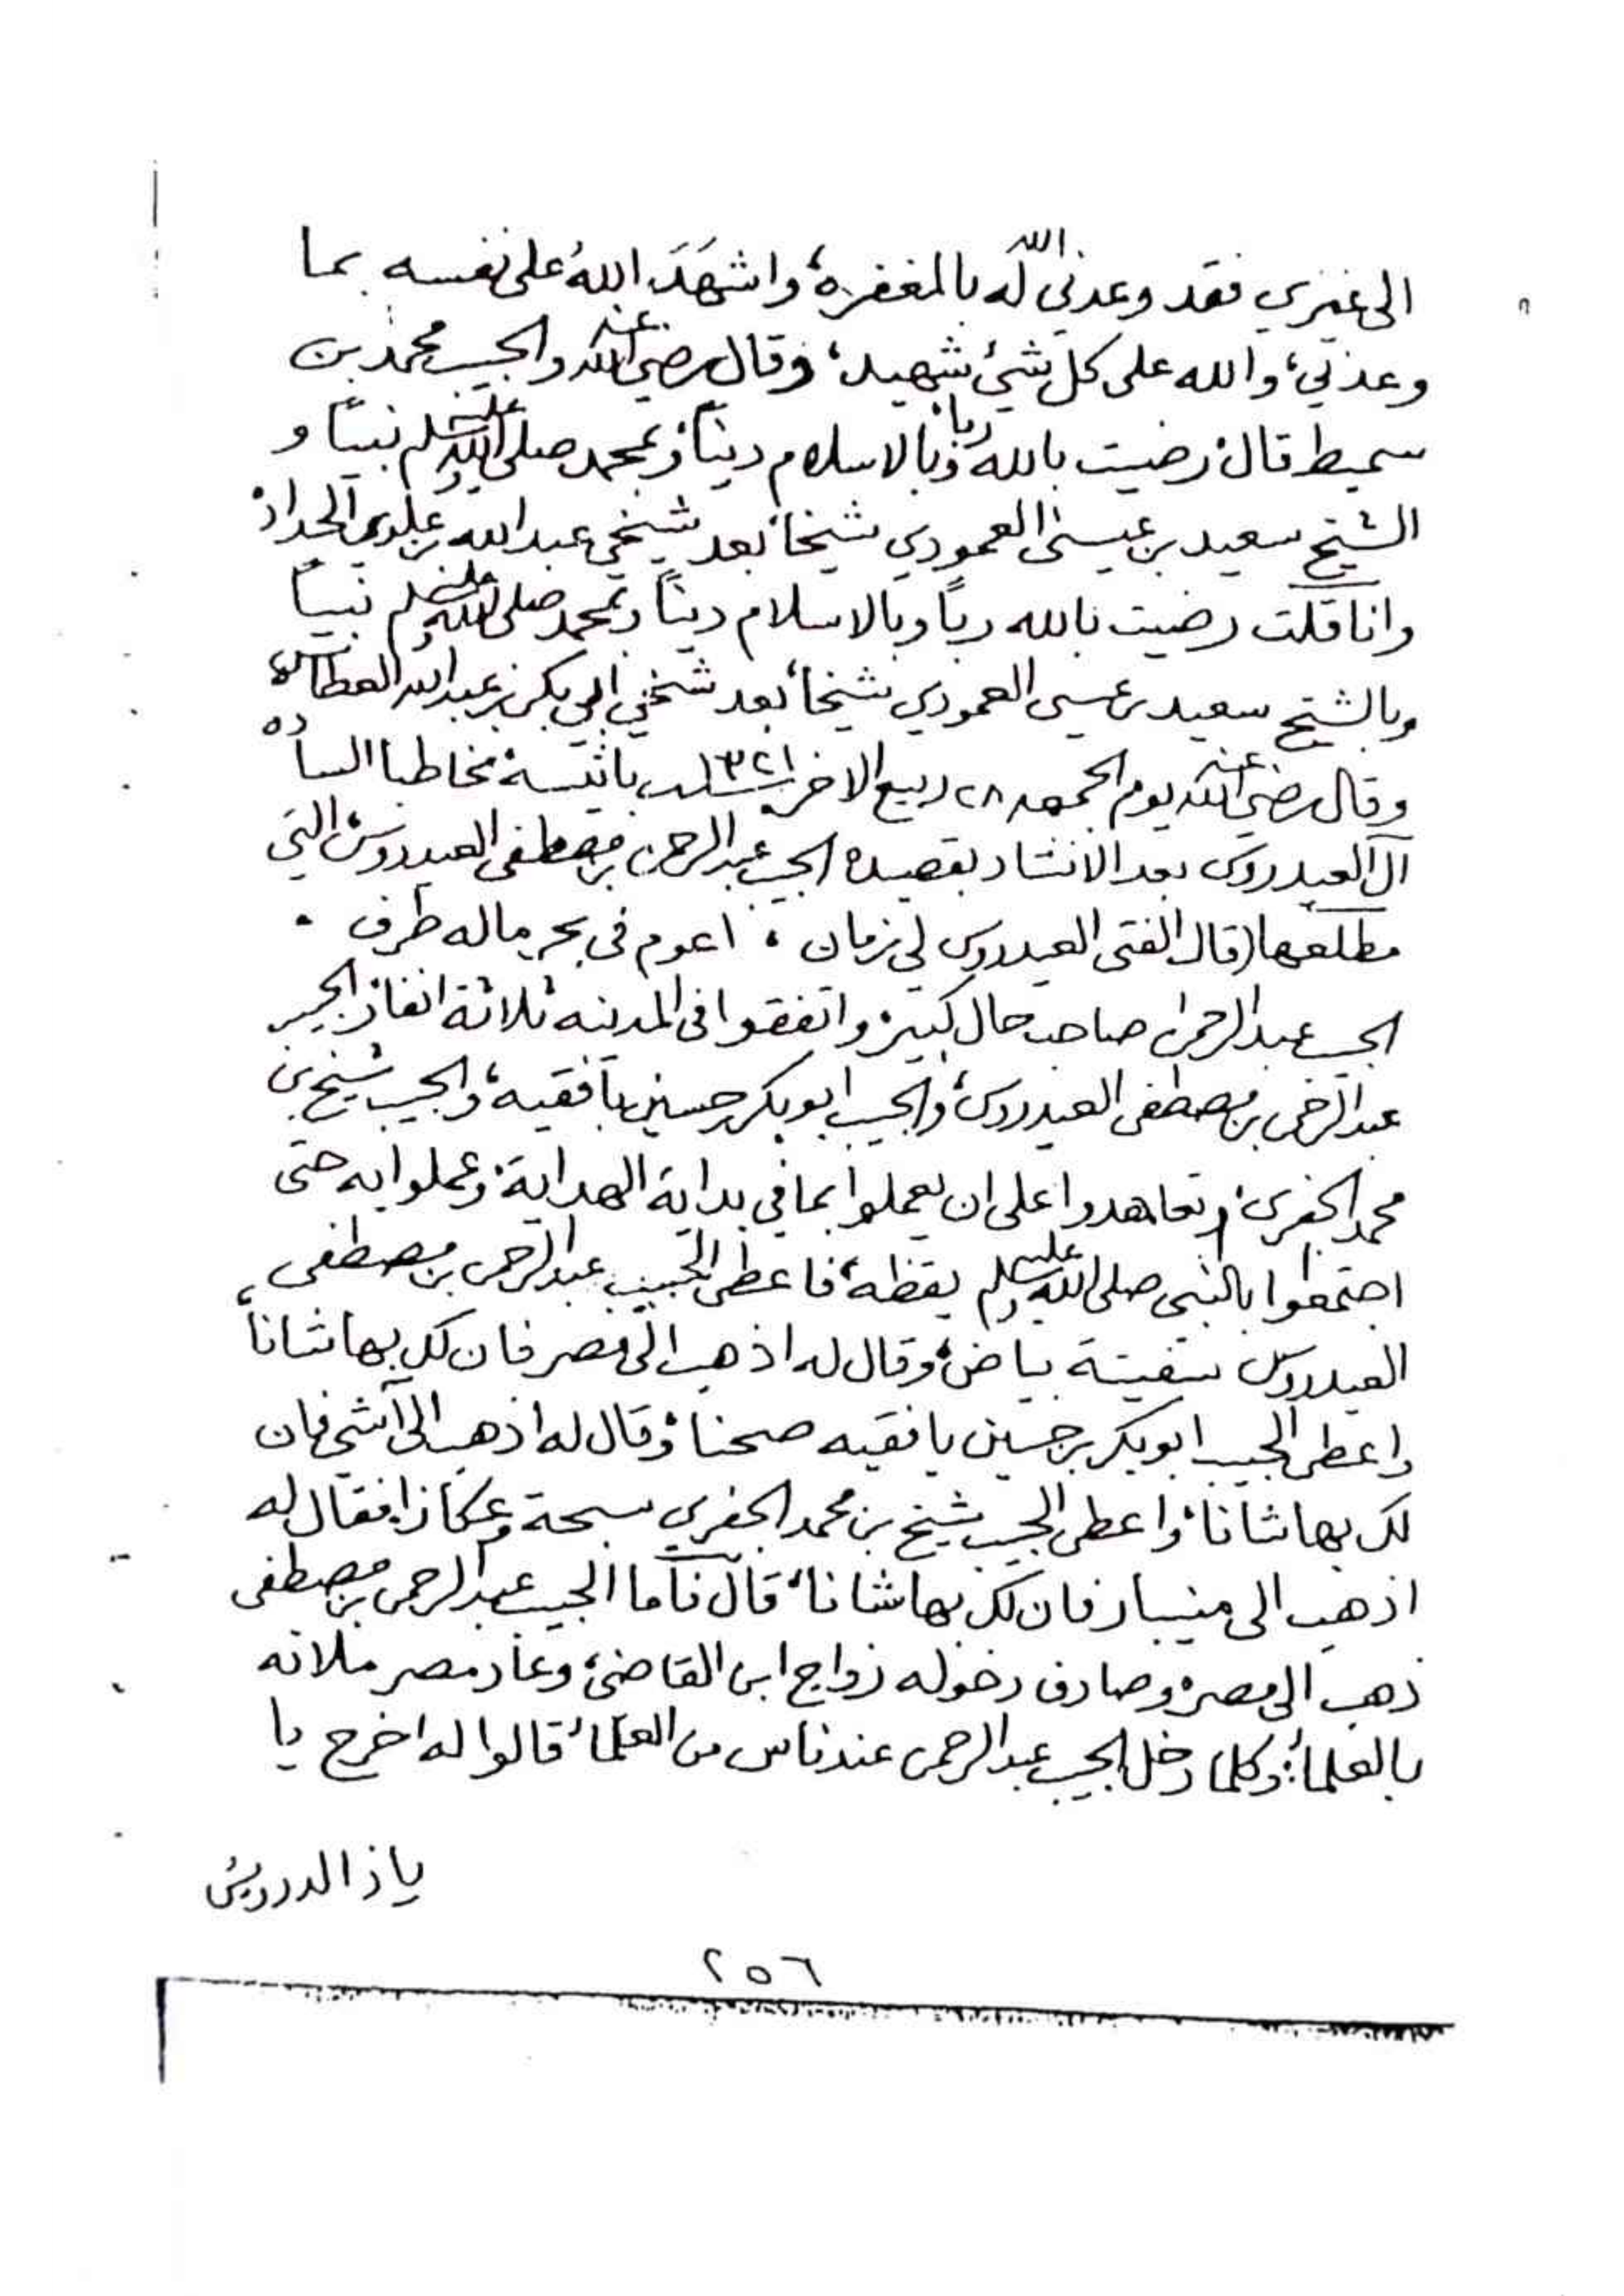 الى غيري فقد وعدني الله له بالمغفرة، واشهَدَ اللهُ على نفسه بما
وعدني، والله على كل شيئ شهيد، وقال رضي الله عنه والحبيب محمد بن
سميط قال رضيت بالله ربا، وبالاسلام ديناً، وبمحمد صلى الله عليه وسلم نبيًا و
الشيخ سعيد بن عيسى العمودي شيخا، بعد شيخي عبدالله بن علوي الحداد،
وانا قلت رضيت بالله رباً وبالاسلام ديناً وبمحمد صلى الله عليه وسلم نبيا
وبالشيخ سعيد بن عيسى العمودي شيخا، بعد شيخي ابي بكر بن عبدالله العطاس،
وقال رضي الله عنه يوم الجمعه ٢٨ ربيع الاخر سنة ١٣٢١ مخاطبا السادة
آل العيدروس بعد الانشاد بقصيدة الحبيب عبدالرحمن بن مصطفى العيدروس، التي
مطلعها (قال الفتى العيدروس لي زمان ، اعوم في بحر ماله طرف .
الحبيب عبدالرحمن صاحب حال كبير، واتفقوا في المدينه ثلاثة انفار، الحبيب
عبدالرحمن بن مصطفى العيدروس، والحبيب ابوبكر حسين بافقيه، والحبيب شيخ بن
محمد الجفري، وتعاهدوا على ان يعملوا بما في بداية الهداية، وعملوا به حتى
اجتمعوا بالنبي صلى الله عليه وسلم يقظة، فاعطى الحبيب عبدالرحمن بن مصطفى
العيدروس سفينة بياض، وقال له اذهب الى مصر فان لك بها شاناً،
واعطى الحبيب ابوبكر بن حسين بافقيه صحنا، وقال له اذهب الى آشي فان
لك بها شانا، واعطى الحبيب شيخ بن محمد الجفري سبحة وعكازا فقال له
اذهب الى منيبار فان لك بها شانا، قال فأما الحبيب عبدالرحمن بن مصطفى
ذهب الى مصر، وصادف دخوله زواج ابن القاضي، وعاد مصر ملانه
بالعلماء، وكلما دخل الحبيب عبدالرحمن عند ناس من العلماء قالوا له اخرج يا
ياذا الدرويش
٢٥٦